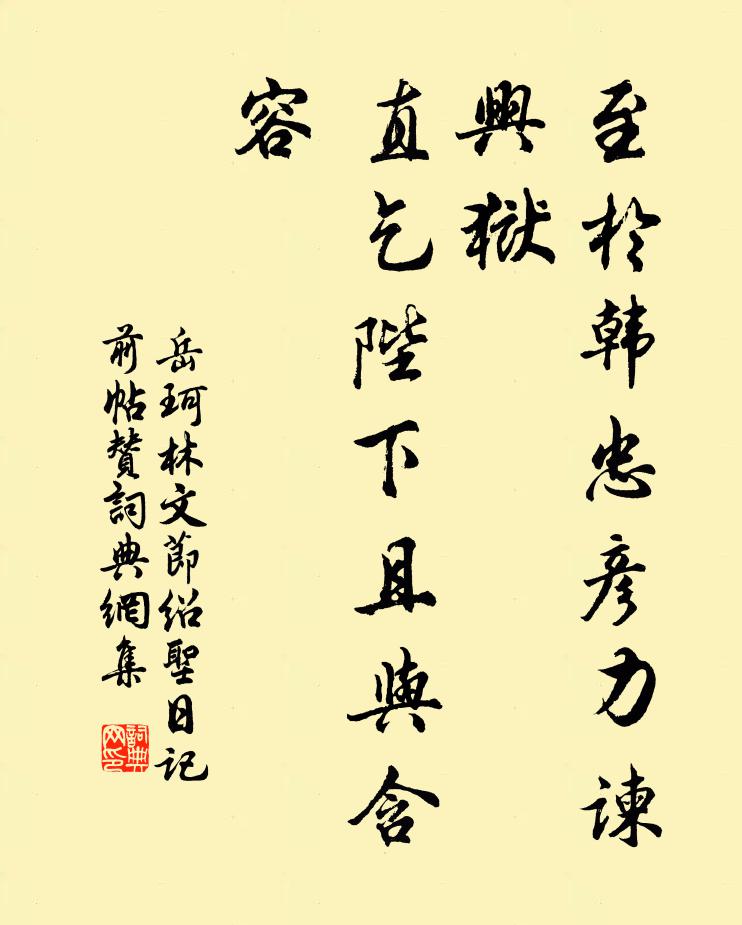 至於韩忠彦力谏
興獄
直乞陛下且與含
容
岳珂林文節绍聖日记
前帖贊詞典網集
詞典
网印